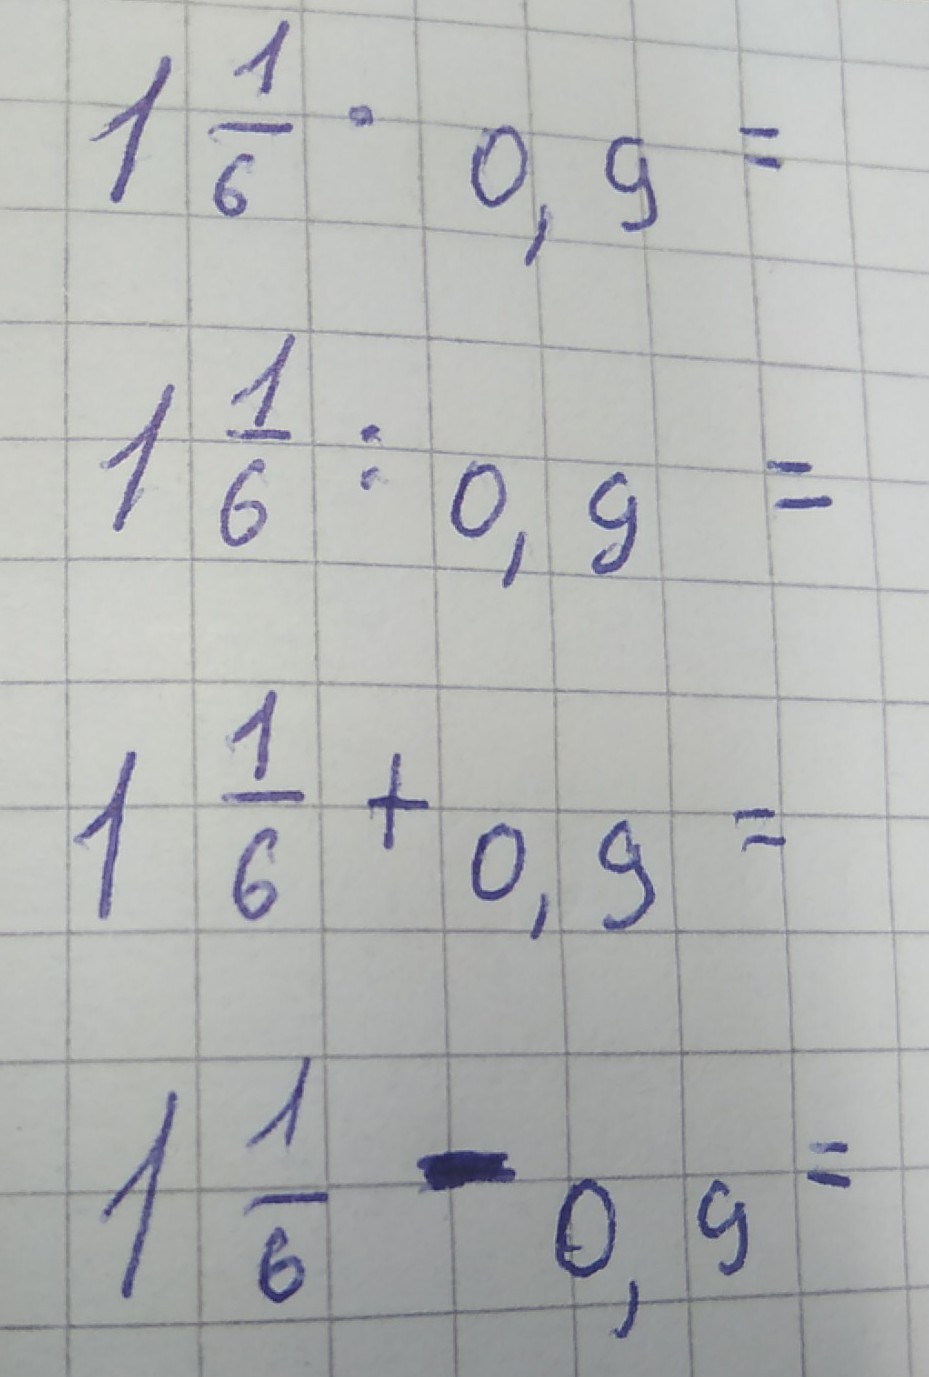 1 1/6 · 0,9 =
1 1/6 : 0,9 =
1 1/6 + 0,9 =
1 1/6 - 0,9 =